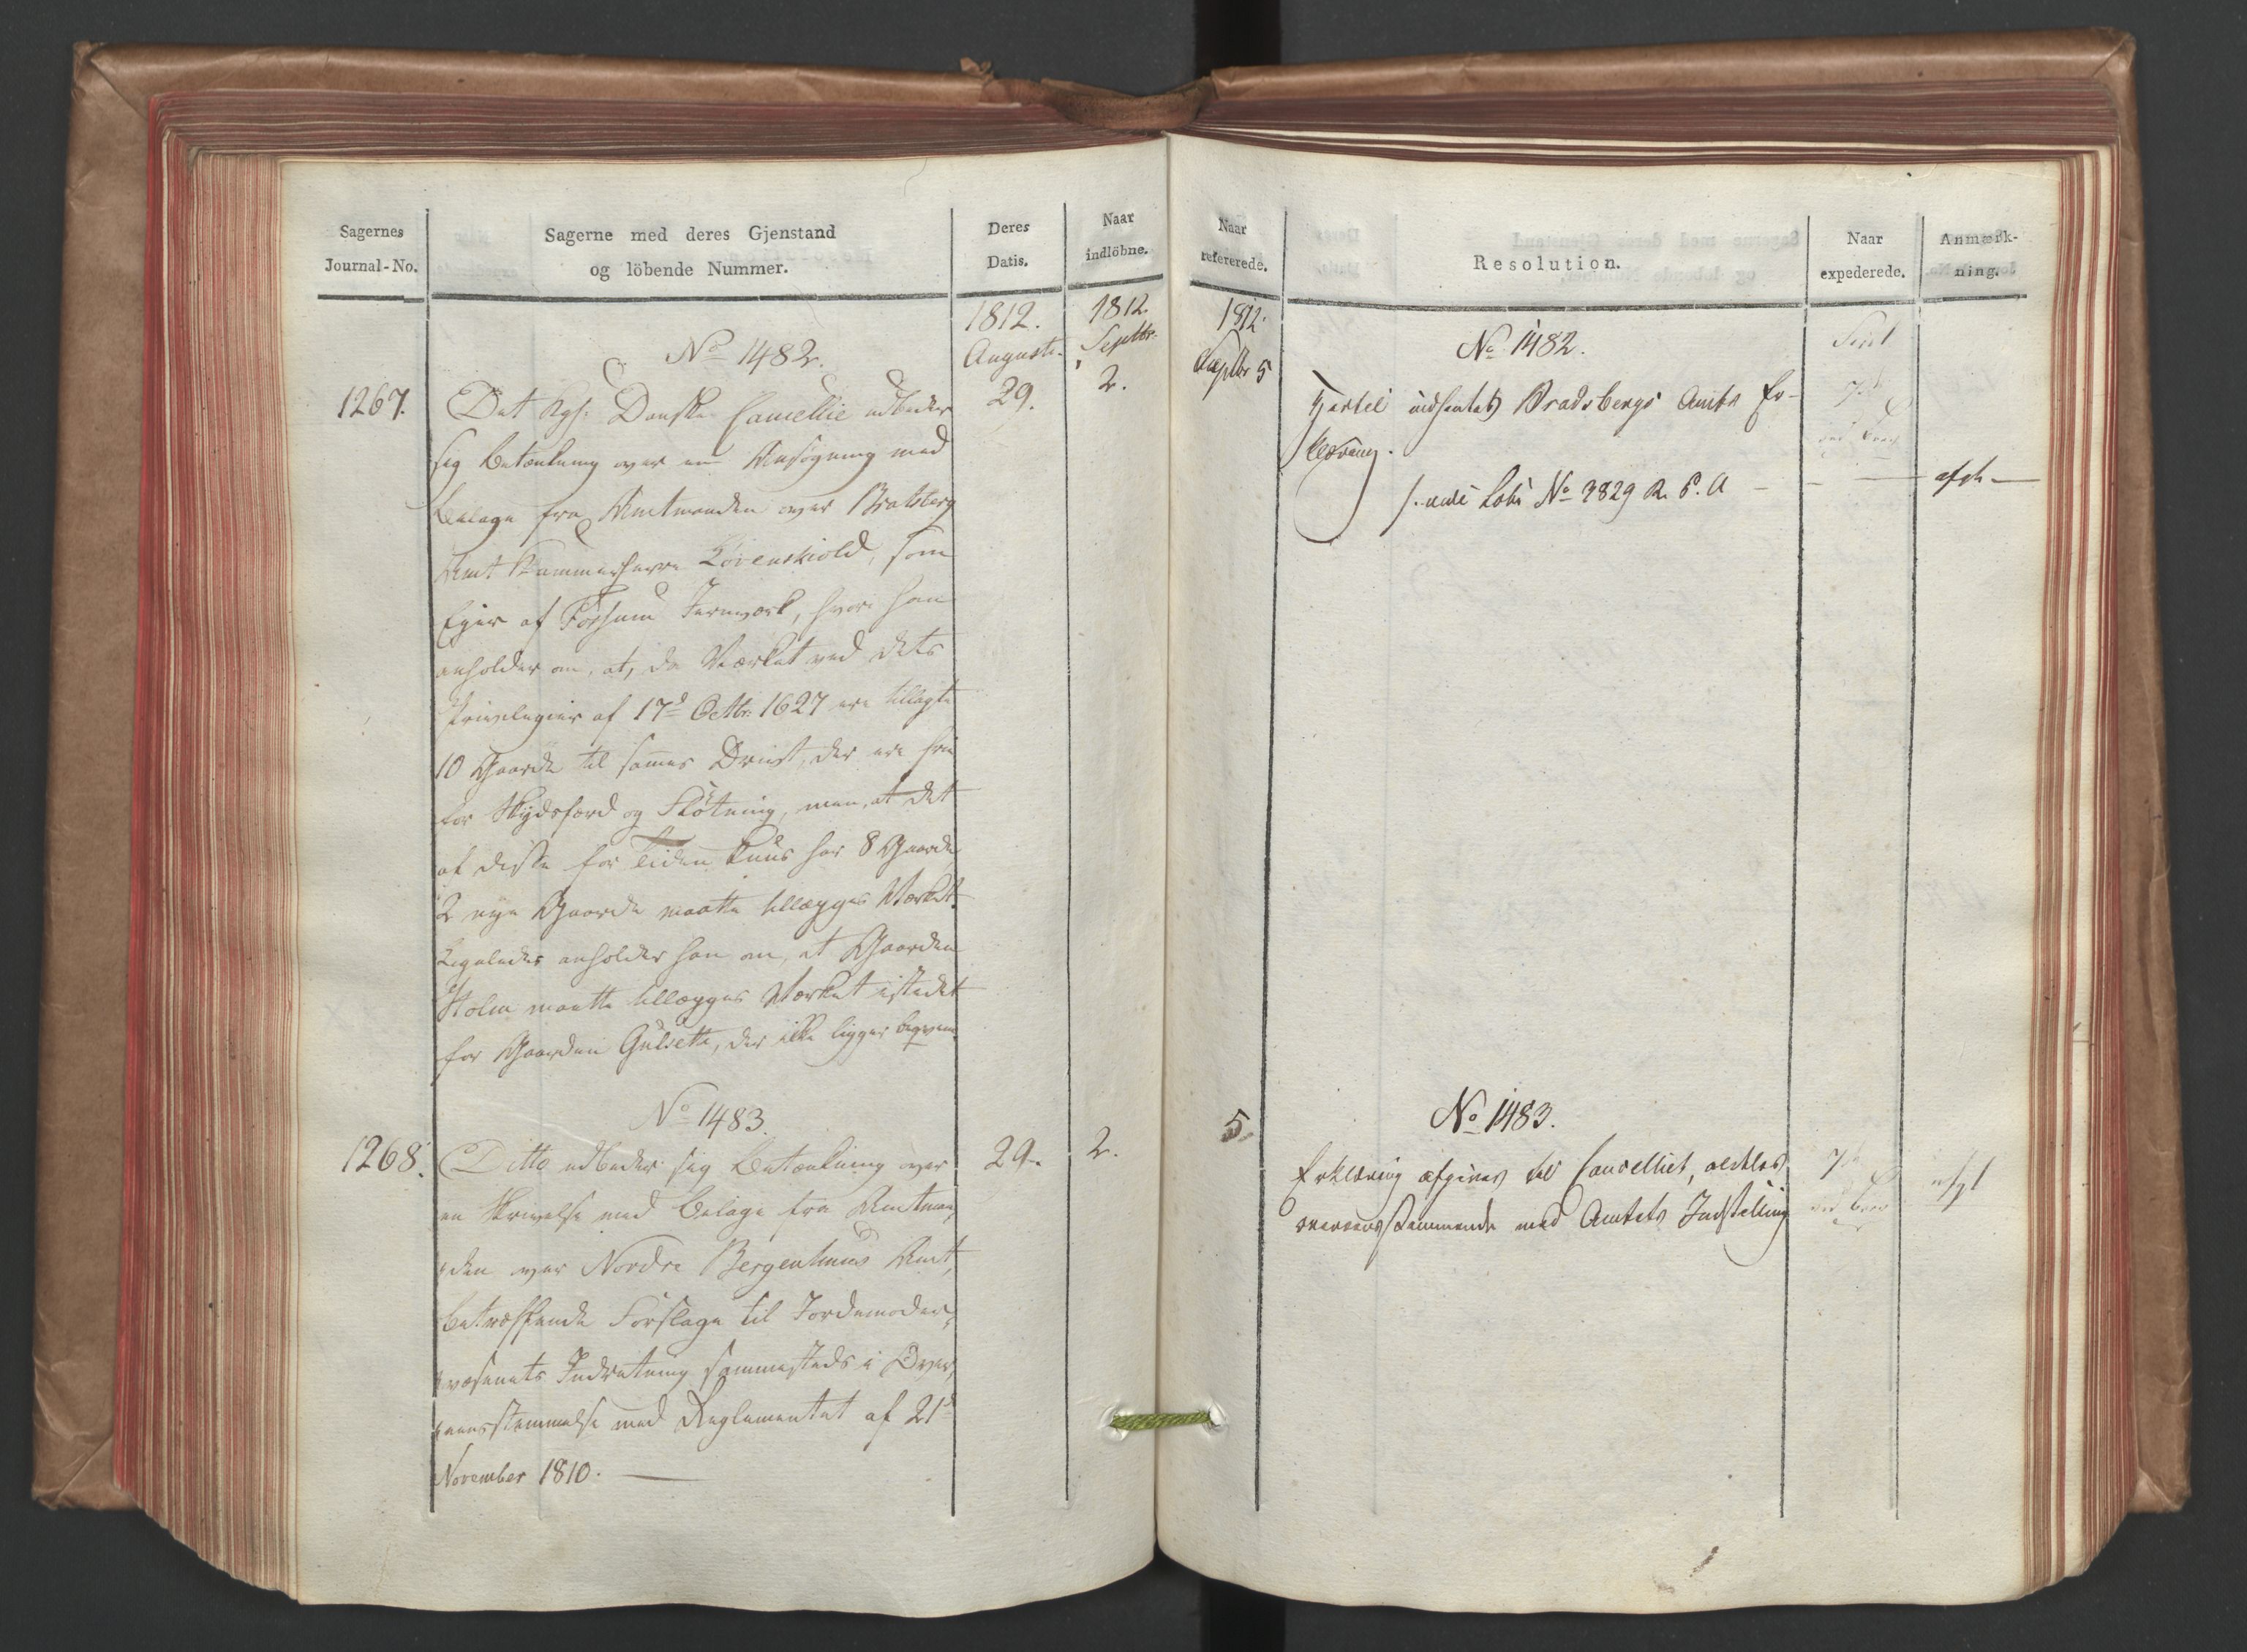 Sagernes
Journal-No.
Sagerne med deres Gjenstand
og löbende Nummer.
Deres
Datis.
Naar
indlöbne.
1812.
Augusti.
1812.
Septbr.
No 1482.
1267.
29.
2.
Det Kgl: Danske Cancellie udbeder
sig Betænkning over en Ansøgning med
Bilage fra Amtmanden over Bratsberg
Amt Kammerherre Løvenskiold, som
Ejer af Fossum Jernværk, hvori han
anholder om, at, da Værket ved dets
Privilegier af 17d Octbr: 1627 ere tillagte
10 Gaarde til sammes Drivt, der ere frie
for Skydsferd og Fløtning, men, at det
af disse for Tiden kuns har 8 Gaarde
2 nye Gaarde maatte tillægges Værket.
Ligeledes anholder han om, at Gaarden
Holm maatte tillægges Værket istedet
for Gaarden Gulsette, der ikke ligger beqvem.
No 1483.
1268.
29.
2.
Ditto udbeder sig Betænkning over
en Skrivelse med Bilage fra Amtman,
den over Nordre Bergenhuus Amt,
betræffende Forslage til Jordemoder,
væsenets Indretning sammesteds i Over,
eensstemmelse med Reglementet af 21d
November 1810.
Naar
refererede.
Resolution.
Naar
expederede.
Anmærk-
ning.
1812.
Septbr 5
No 1482.
7d
indhentet Bradsbergs Amts Er-
klæring.
Lobe No 3829 R. P. A
5.
No 1483.
7d
Erklæring afgives til Cancelliet,
overeensstemmende med Amtets Indstilling